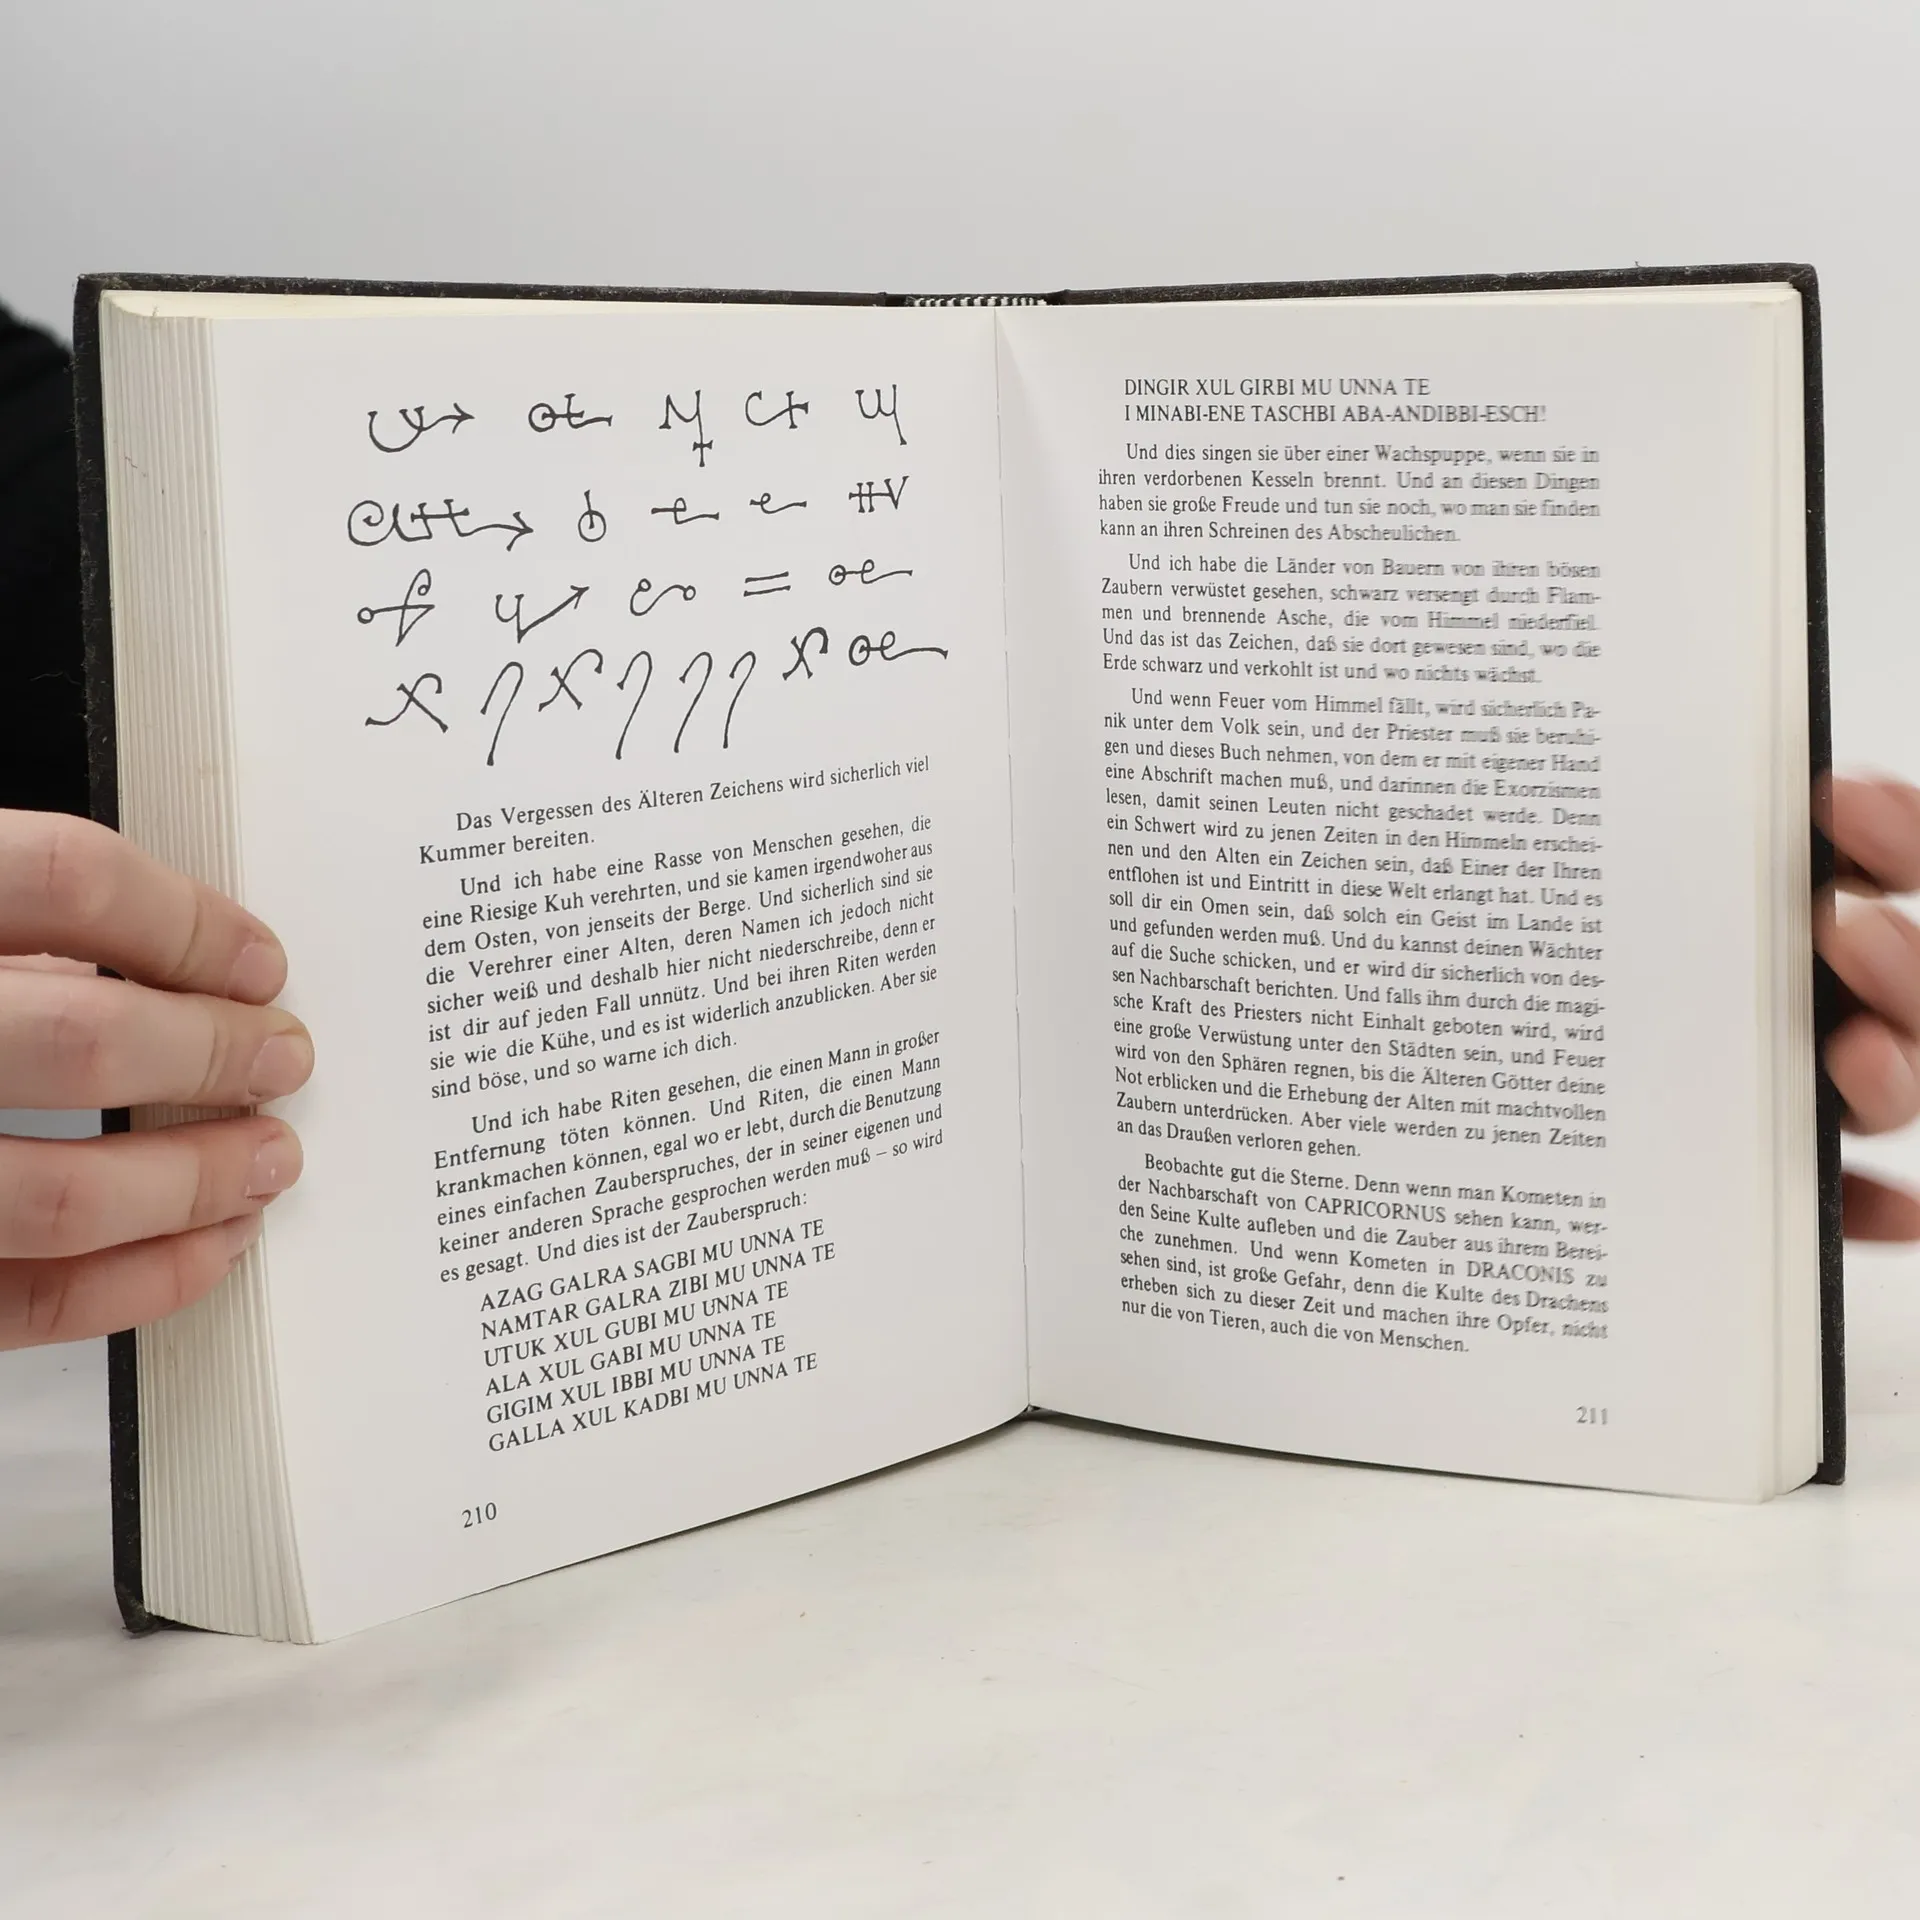 Das Vergessen des Älteren Zeichens wird sicherlich viel
Kummer bereiten.
Und ich habe eine Rasse von Menschen gesehen, die
eine Riesige Kuh verehrten, und sie kamen irgendwoher aus
dem Osten, von jenseits der Berge. Und sicherlich sind sie
die Verehrer einer Alten, deren Namen ich jedoch nicht
sicher weiß und deshalb hier nicht niederschreibe, denn er
ist dir auf jeden Fall unnütz. Und bei ihren Riten werden
sie wie die Kühe, und es ist widerlich anzublicken. Aber sie
sind böse, und so warne ich dich.
Und ich habe Riten gesehen, die einen Mann in großer
Entfernung töten können. Und Riten, die einen Mann
krankmachen können, egal wo er lebt, durch die Benutzung
eines einfachen Zauberspruches, der in seiner eigenen und
keiner anderen Sprache gesprochen werden muß – so wird
es gesagt. Und dies ist der Zauberspruch:
AZAG GALRA SAGBI MU UNNA TE
NAMTAR GALRA ZIBI MU UNNA TE
UTUK XUL GUBI MU UNNA TE
ALA XUL GABI MU UNNA TE
GIGIM XUL IBBI MU UNNA TE
GALLA XUL KADBI MU UNNA TE
210
DINGIR XUL GIRBI MU UNNA TE
I MINABI-ENE TASCHBI ABA-ANDIBBI-ESCH!
Und dies singen sie über einer Wachspuppe, wenn sie in
ihren verdorbenen Kesseln brennt. Und an diesen Dingen
haben sie große Freude und tun sie noch, wo man sie finden
kann an ihren Schreinen des Abscheulichen.
Und ich habe die Länder von Bauern von ihren bösen
Zaubern verwüstet gesehen, schwarz versengt durch Flam-
men und brennende Asche, die vom Himmel niederfiel.
Und das ist das Zeichen, daß sie dort gewesen sind, wo die
Erde schwarz und verkohlt ist und wo nichts wächst.
Und wenn Feuer vom Himmel fällt, wird sicherlich Pa-
nik unter dem Volk sein, und der Priester muß sie beruhi-
gen und dieses Buch nehmen, von dem er mit eigener Hand
eine Abschrift machen muß, und darinnen die Exorzismen
lesen, damit seinen Leuten nicht geschadet werde. Denn
ein Schwert wird zu jenen Zeiten in den Himmeln erschei-
nen und den Alten ein Zeichen sein, daß Einer der Ihren
entflohen ist und Eintritt in diese Welt erlangt hat. Und es
soll dir ein Omen sein, daß solch ein Geist im Lande ist
und gefunden werden muß. Und du kannst deinen Wächter
auf die Suche schicken, und er wird dir sicherlich von des-
sen Nachbarschaft berichten. Und falls ihm durch die magi-
sche Kraft des Priesters nicht Einhalt geboten wird, wird
eine große Verwüstung unter den Städten sein, und Feuer
wird von den Sphären regnen, bis die Älteren Götter deine
Not erblicken und die Erhebung der Alten mit machtvollen
Zaubern unterdrücken. Aber viele werden zu jenen Zeiten
an das Draußen verloren gehen.
Beobachte gut die Sterne. Denn wenn man Kometen in
der Nachbarschaft von CAPRICORNUS sehen kann, wer-
den Seine Kulte aufleben und die Zauber aus ihrem Berei-
che zunehmen. Und wenn Kometen in DRACONIS zu
sehen sind, ist große Gefahr, denn die Kulte des Drachens
erheben sich zu dieser Zeit und machen ihre Opfer, nicht
nur die von Tieren, auch die von Menschen.
211